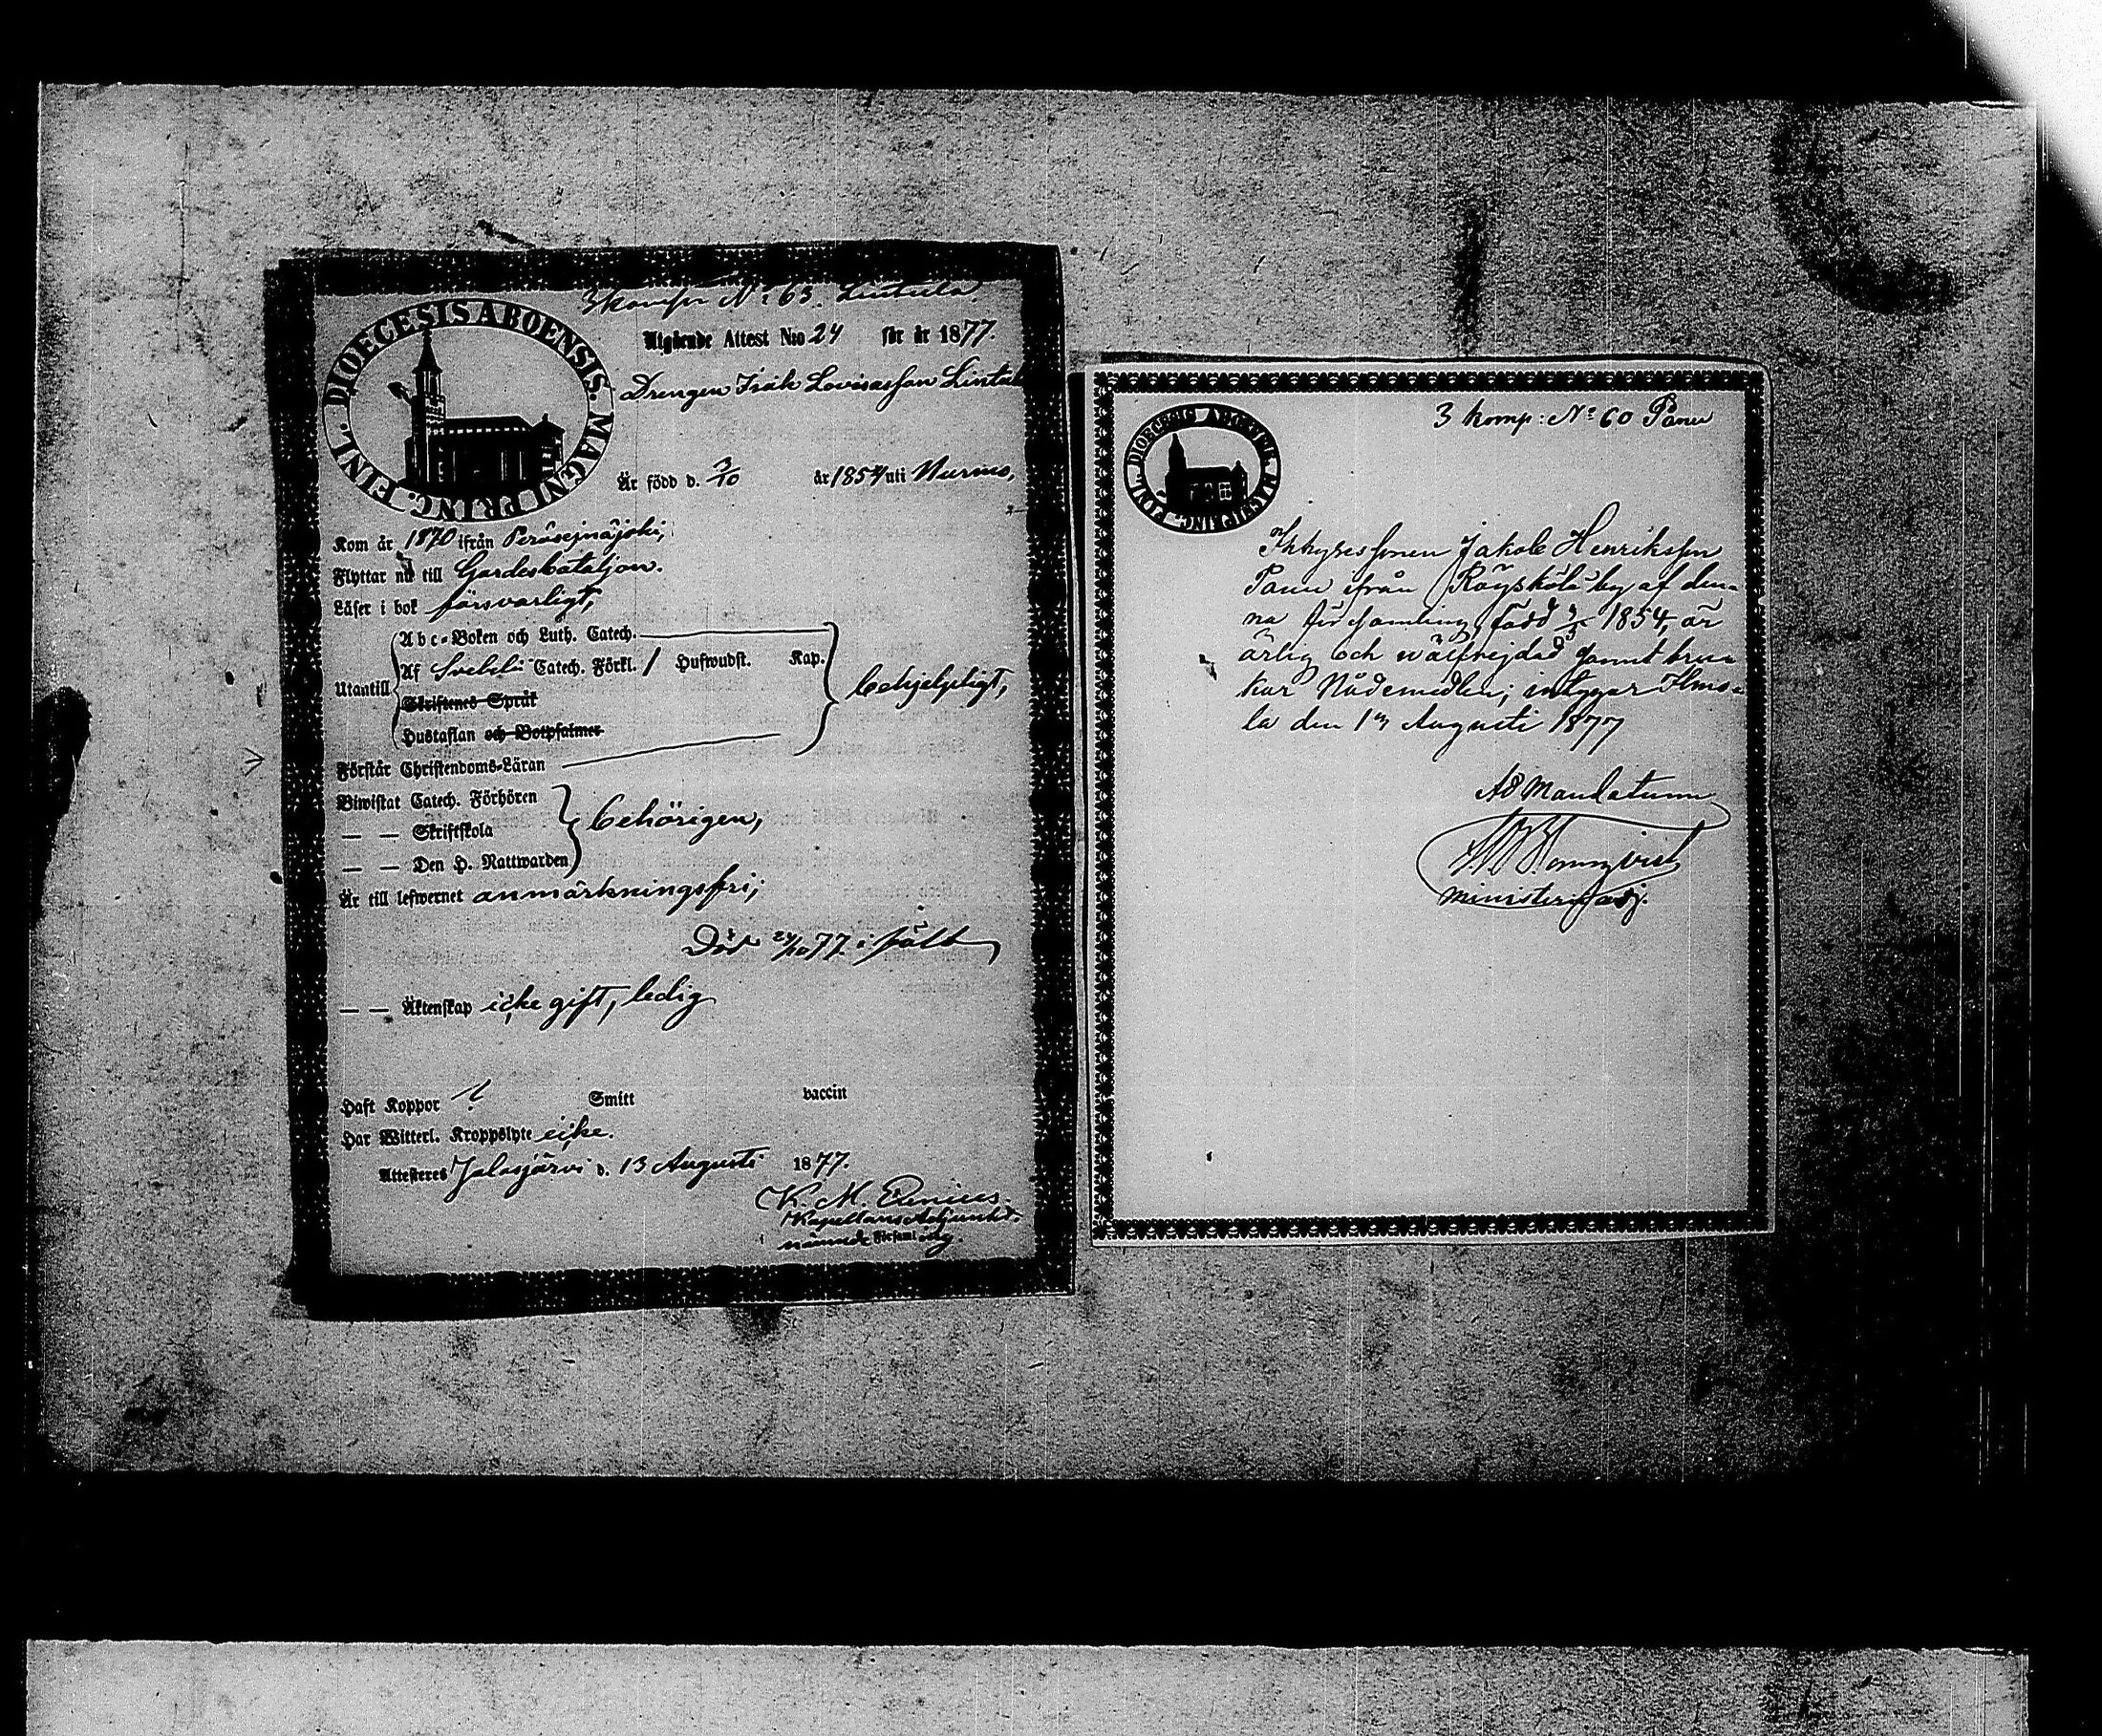 3 komp N:o 63. Lintula.
DIOECESIS ABOENSIS. MAGNI PRINC. FINL.
Utgående Attest N:o 24 för år 1877.
Drengen Isak Lovisasson Lintula
Är född d. 3/10 år 1854 uti Nurmo,
Kom år 1870 ifrån Peräseinäjoki,
Flyttar nu till Gardesbataljon.
Läser i bok försvarligt,
Utantill
Abc-Boken och Luth. Catech.
Af Svebeli Catech. Förkl. 1 Hufwudst. Kap.
behjelpligt,
Skriftenes Språk
Hustaflan och Botpsalmer
Förstår Christendoms-Läran
Biwistat Catech. Förhören
— — Skriftskola
behörigen,
— — Den H. Nattwarden
Är till lefwernet anmärkningsfri;
Död 24/10 77. i fält
— — Äktenskap icke gift, ledig
Haft Koppor ? Smitt vaccin
Har Witterl. Kroppslyte icke.
Attesteres Jalasjärvi d. 13 Augusti 1877.
K. M.
Kapellans Adjunkt.
nämnde Församl ing.
3 komp: N:o 60 Panu
DIOECESIS ABOENSIS. MAGNI PRINC. FINL.
Jakob Henriksson
Panu ifrån Röyskölä by af den-
na församling, född 1854, är
ärlig och wälfrejdad samt bru-
kar Nådemedlen; intygar Ilmo-
la den 1 Augusti 1877
Ad Mandatum
Ministerii adj.